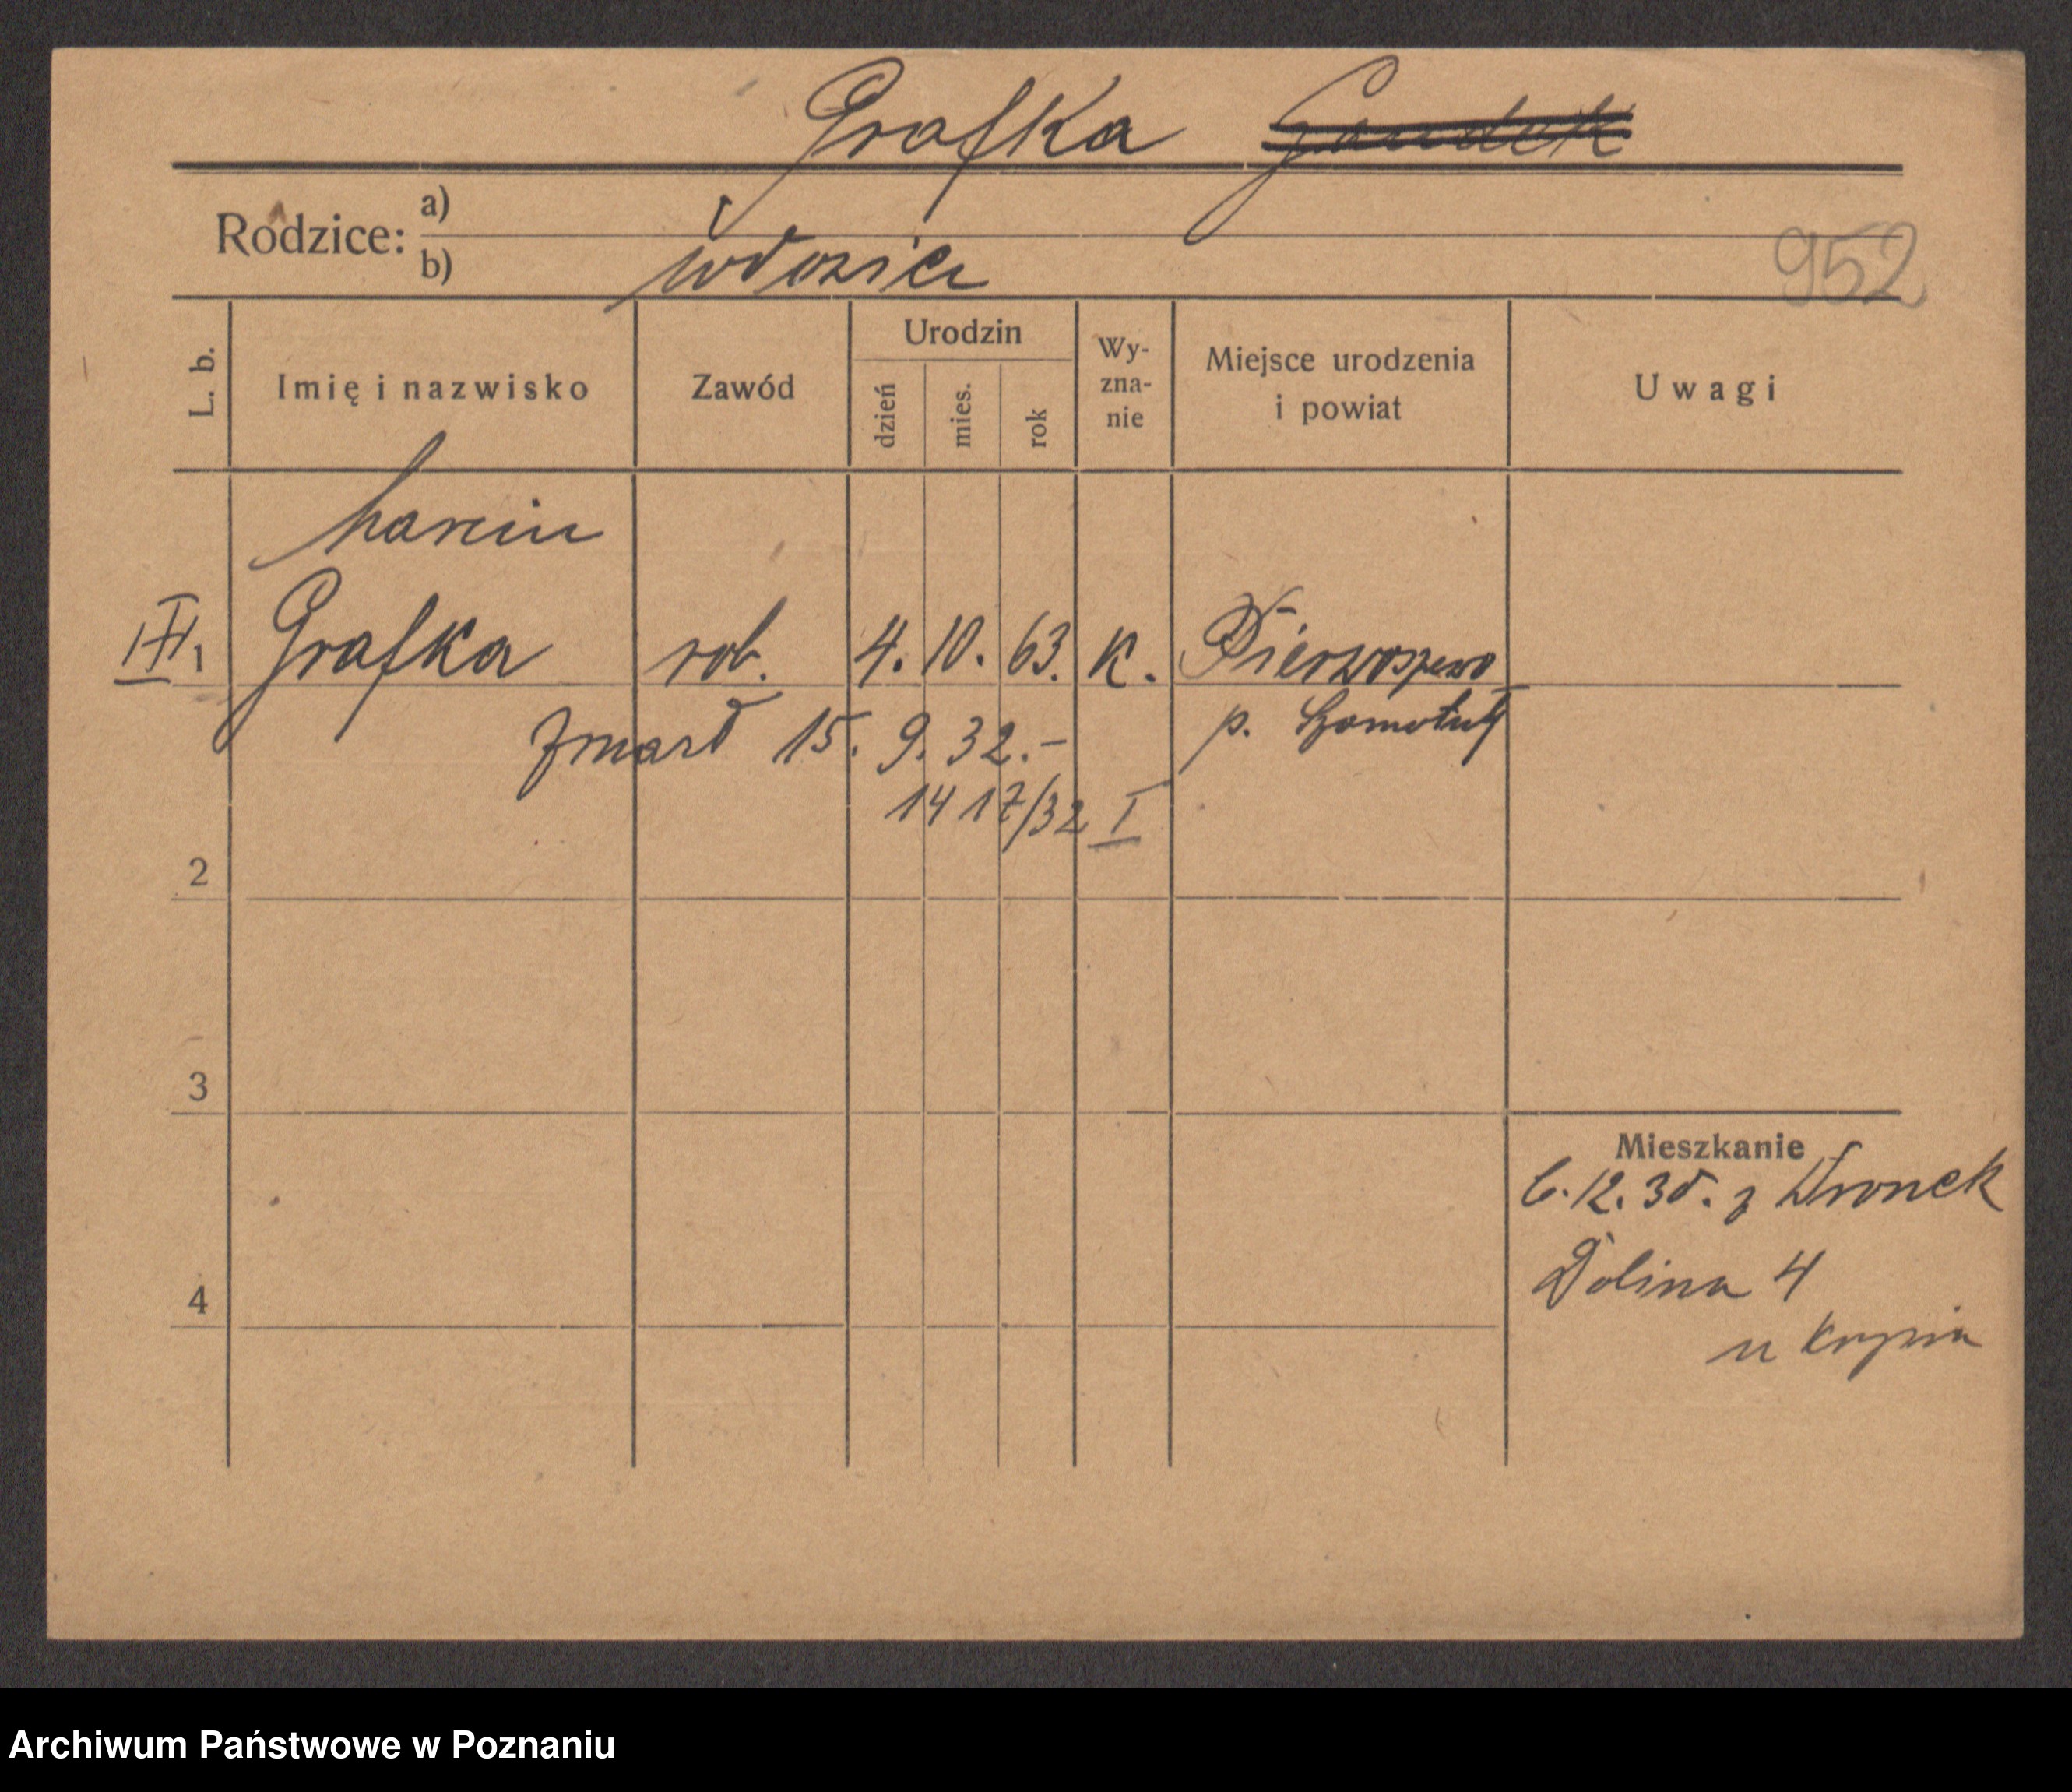 Grafka
Rodzice: a)
b) wdowiec
952
L. b.
Imię i nazwisko
Zawód
Urodzin
dzień
mies.
rok
Wy-
zna-
nie
Miejsce urodzenia
i powiat
Uwagi
Marcin
1 Grafka rob. 4. 10. 63. K. Pierwoszewo
p. Szamotuły
zmarł 15. 9. 32.-
1417/32 I
2
3
4
Mieszkanie
6.12.30. z Wronek
Dolina 4
u
Archiwum Państwowe w Poznaniu